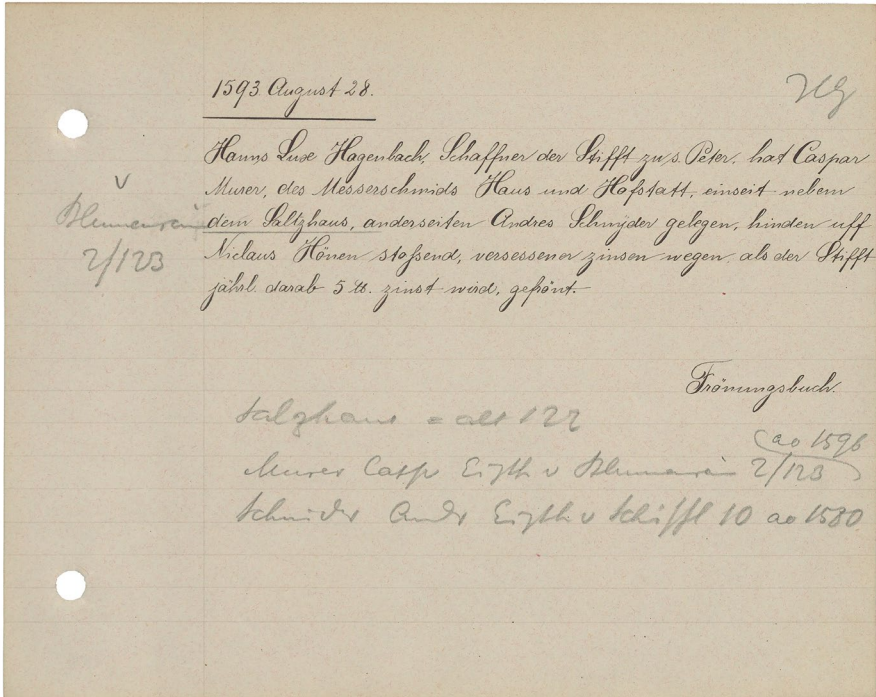 1593 August 28.
Hanns Luxe Hagenbach, Schaffner der Stifft zu s. Peter, hat Caspar
Murer, des Messerschmids Haus und Hofstatt, einseit nebem
dem Saltzhaus, anderseiten Andres Schnyder gelegen, hinden uff
Niclaus Hönen stossend, versessener zinsen wegen, als der Stifft
jährl. darab 5 ℔. zinst wird, gefrönt.
v
Blumenrain
2/123
Frönungsbuch.
Salzhaus = alt 122
(ao 1596
Murer Casp Eigth v Blumenrain 2/123
Schnider Andr Eigth v Schiffl 10 ao 1580